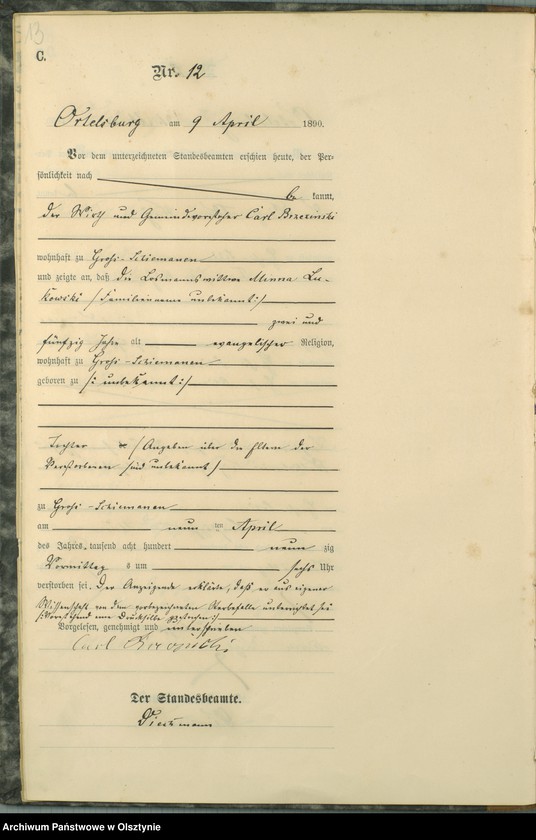 13
C.
Nr. 12
Ortelsburg am 9 April 1890.
Vor dem unterzeichneten Standesbeamten erschien heute, der Per-
sönlichkeit nach
be kannt,
der Wirth und Gemeindevorsteher Carl Brzezinski
wohnhaft zu Groß-Schiemanen
und zeigte an, daß die Losmannswittwe Minna Lu-
kowski /: Familienname unbekannt :/
zwei und
fünfzig Jahre alt evangelischer Religion,
wohnhaft zu Groß-Schiemanen
geboren zu /: unbekannt :/
Tochter /: Angaben über die Eltern der
Verstorbenen sind unbekannt :/
zu Groß-Schiemanen
am neun ten April
des Jahres tausend acht hundert neun zig
Vormittag s um sechs Uhr
verstorben sei. Der Anzeigende erklärte, daß er aus eigener
Wissenschaft von dem vorbezeichneten Sterbefalle unterrichtet sei
/: Vorstehend eine Drucksilbe gestrichen :/
Vorgelesen, genehmigt und unterschrieben
Carl Brzezinski
Der Standesbeamte.
Archiwum Państwowe w Olsztynie